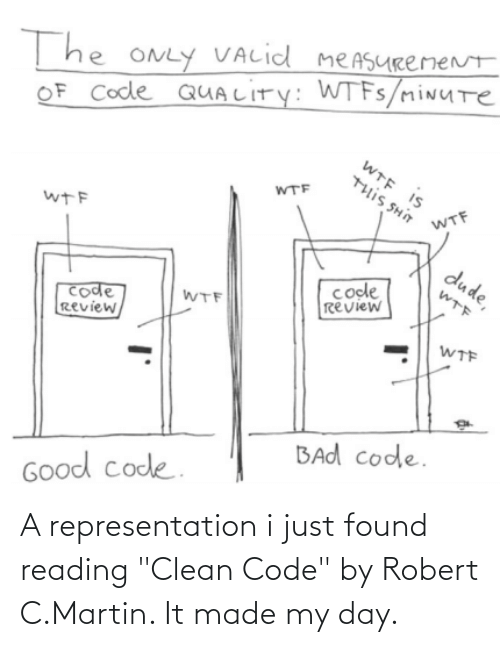 The ONLY VALid MEASUREMENT
OF Code QUALITY: WTFs/MINUTE
WTF
code
Review
WTF
Good code.
WTF
WTF is
THiS SHiT
WTF
code
Review
dude,
WTF
WTF
BAd code.
A representation i just found
reading "Clean Code" by Robert
C.Martin. It made my day.